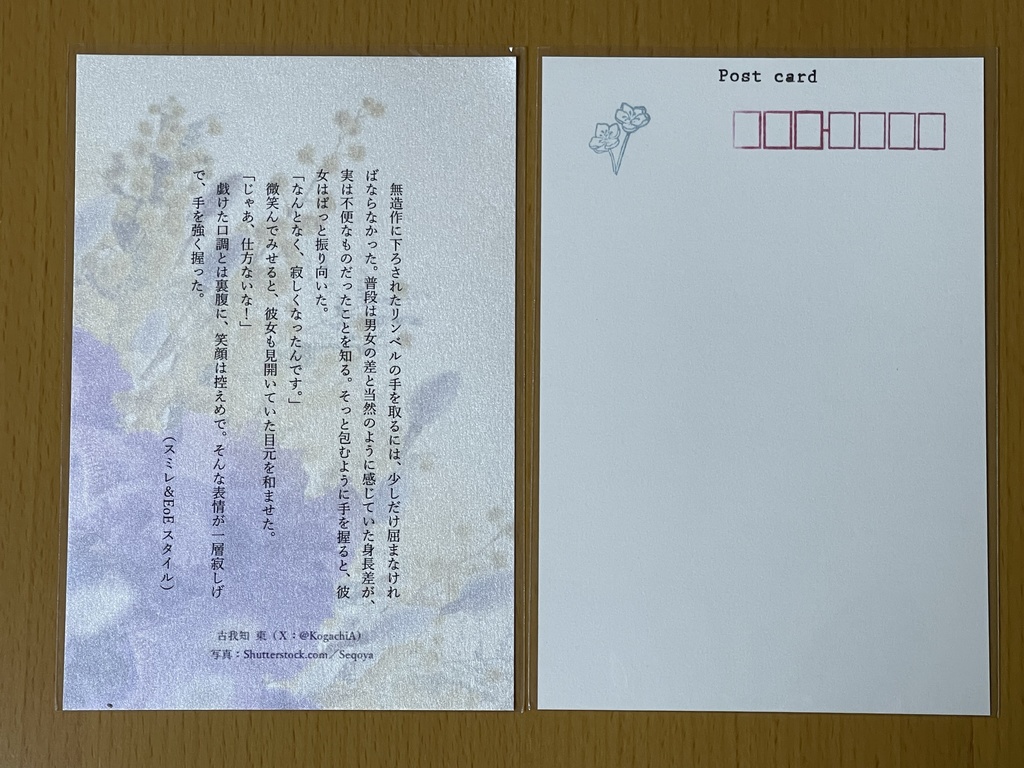 無造作に下ろされたリンベルの手を取るには、少しだけ屈まなけれ
ばならなかった。普段は男女の差と当然のように感じていた身長差が、
実は不便なものだったことを知る。そっと包むように手を握ると、彼
女はぱっと振り向いた。
「なんとなく、寂しくなったんです。」
微笑んでみせると、彼女も見開いていた目元を和ませた。
「じゃあ、仕方ないな！」
戯けた口調とは裏腹に、笑顔は控えめで。そんな表情が一層寂しげ
で、手を強く握った。
（スミレ&EoE スタイル）
古我知 東（X：@KogachiA）
写真：Shutterstock.com／Seqoya
Post card